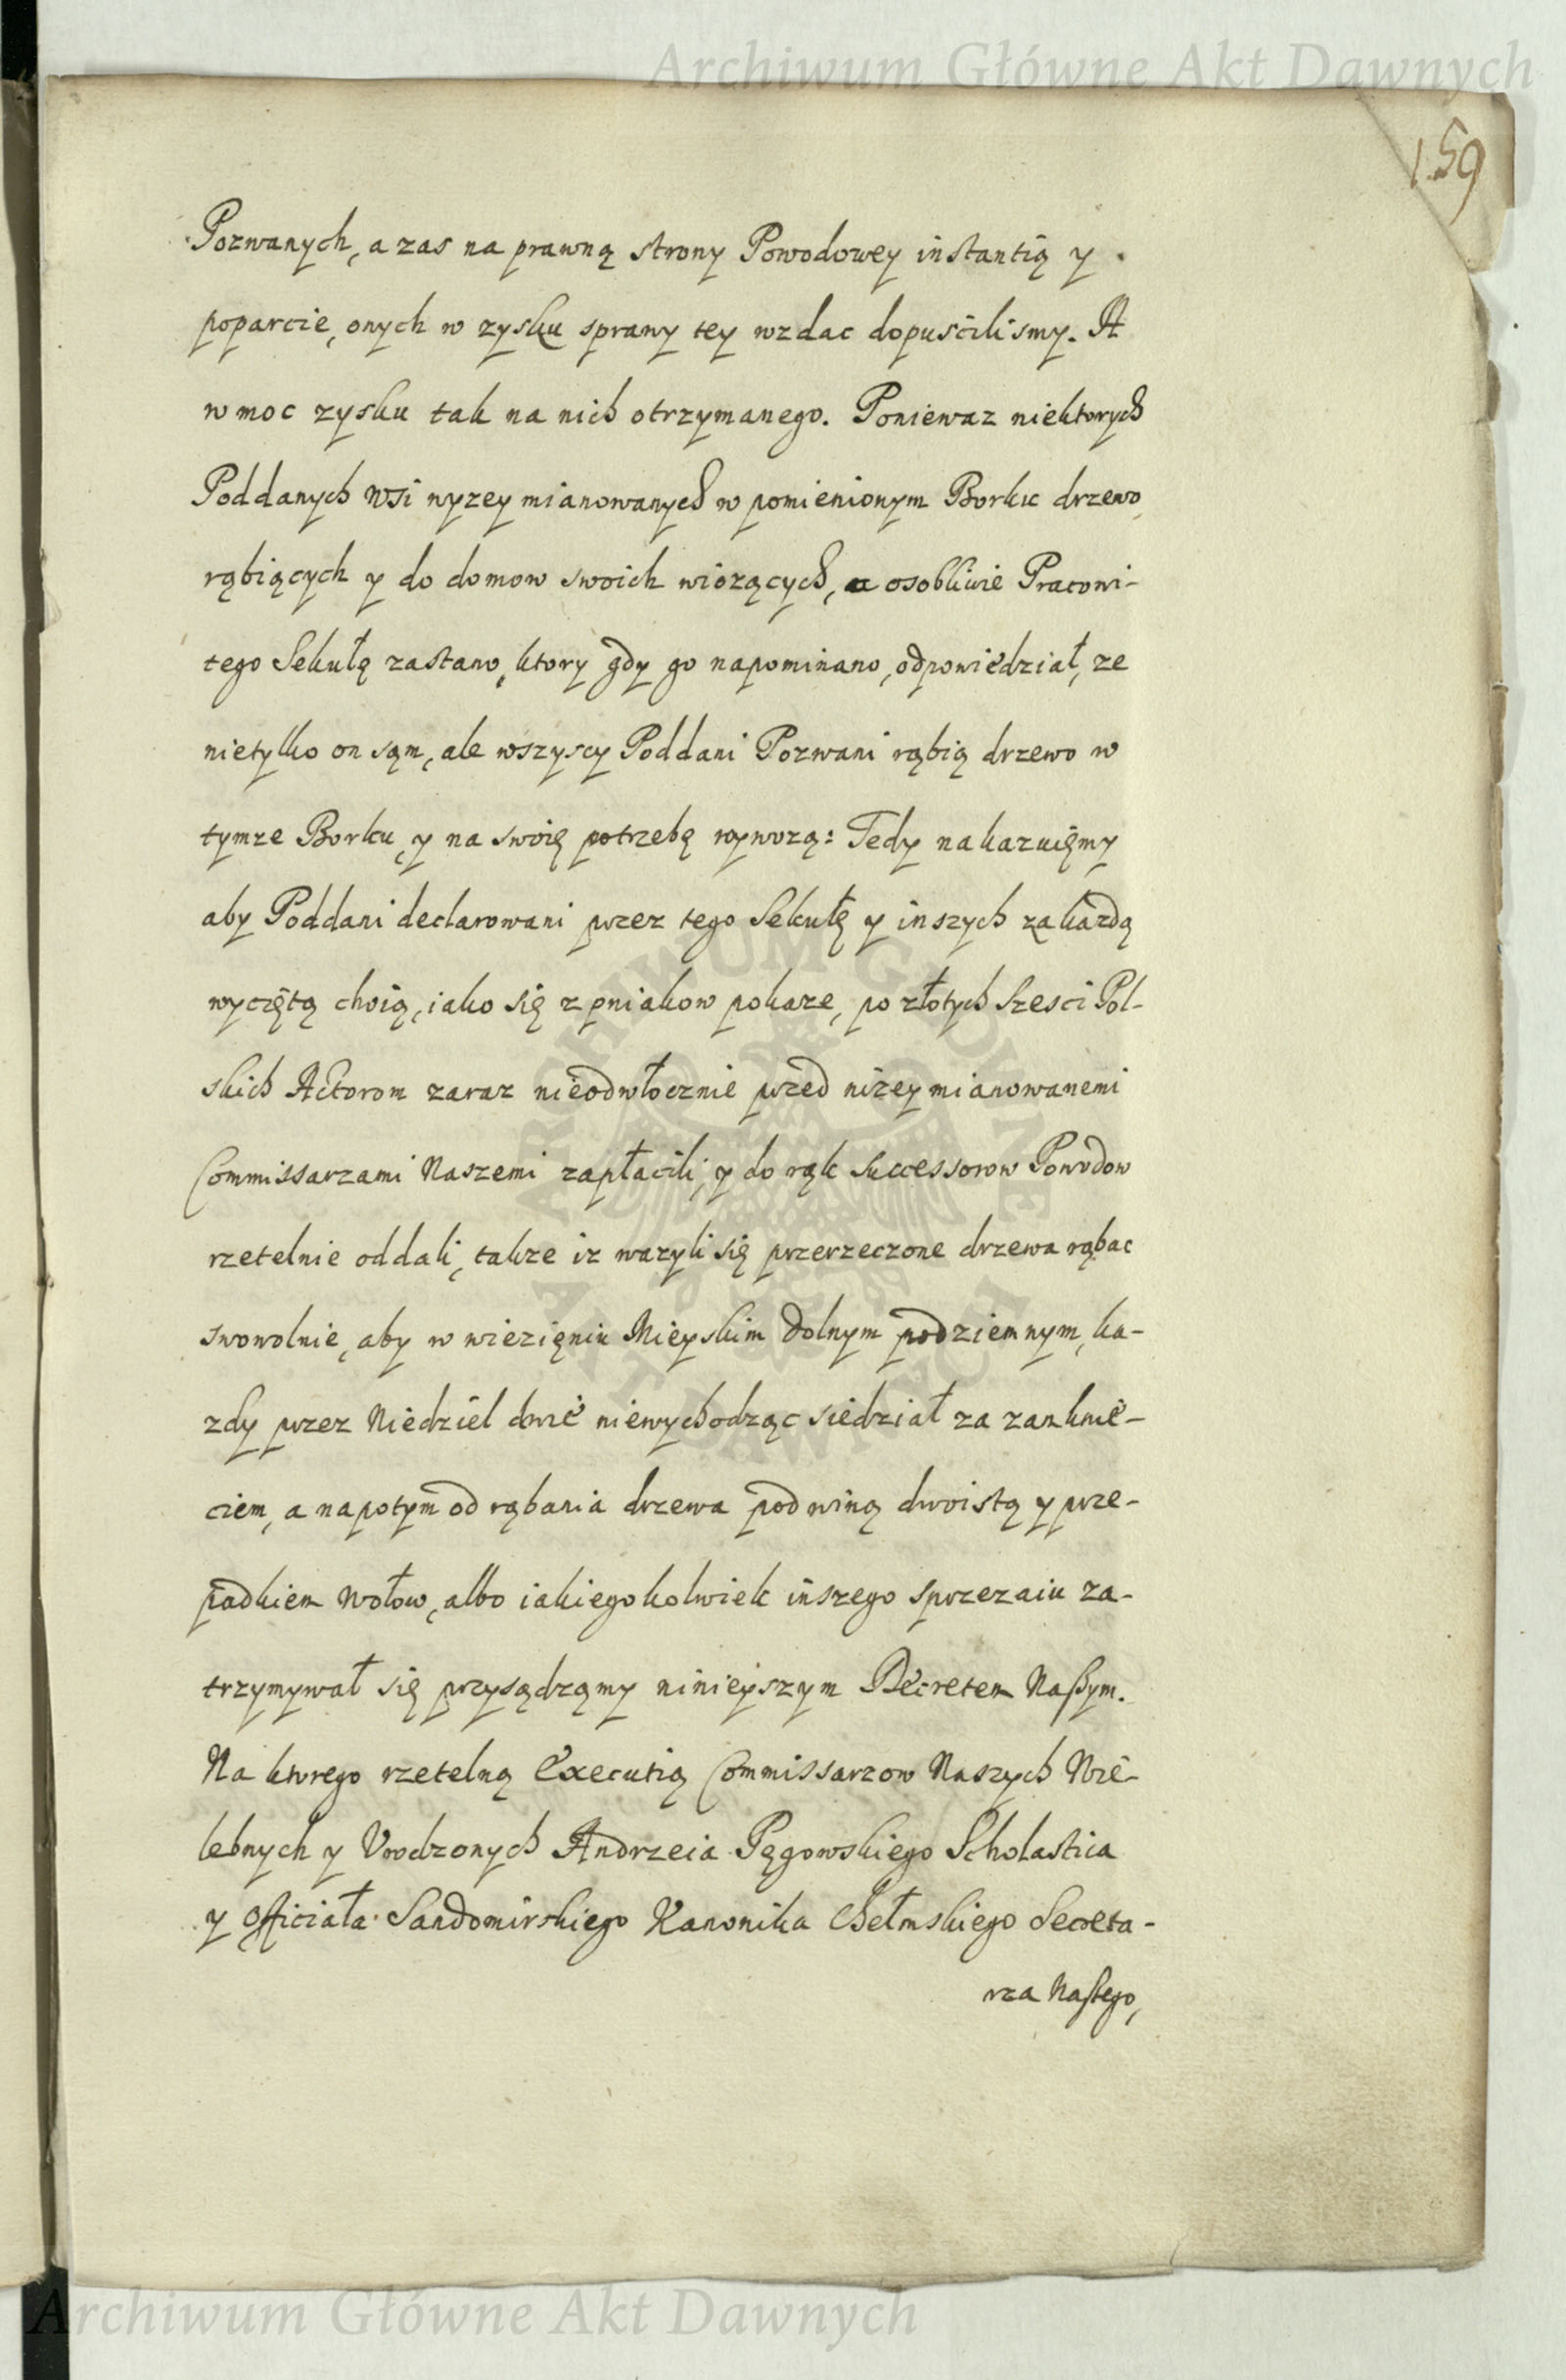 Archiwum Główne Akt Dawnych
159
Pozwanych, a zas na prawną strony Powodowey instantią y
poparcie, onych w zysku sprawy tey wzdac dopuścilismy. A
w moc zysku tak na nich otrzymanego. Poniewaz niektorych
Poddanych wsi wyzey mianowanych w pomienionym Borku drzewo
rąbiących y do domow swoich wiozących, a osobliwie Pracowi-
tego Sekułę zastano, ktory gdy go napominano, odpowiedział, ze
nietylko on sąm, ale wszyscy Poddani Pozwani rąbią drzewo w
tymze Borku, y na swoię potrzebę wywozą: Tedy nakazuięmy
aby Poddani declarowani przez tego Sekułę y inszych za kazdą
wyciętą choią, iako się z pniakow pokaze, po złotych szesci Pol-
skich Actorom zaraz nieodwłocznie przed nizey mianowanemi
Commissarzami Naszemi zapłacili, y do rąk Successorow Powodow
rzetelnie oddali, takze iz wazyli się przerzeczone drzewa rąbac
swowolnie, aby w wiezięniu Mieyskim dolnym podziemnym, ka-
zdy przez Niedziel dwie niewychodząc siedział za zamknie-
ciem, a napotym od rąbania drzewa pod winą dwoistą y prze-
padkiem Wołow, albo iakiegokolwiek inszego sprzezaiu za-
trzymywał się przysądząmy ninieyszym Decretem Naszym.
Na ktorego rzetelną Executią Commissarzow Naszych Wie-
lebnych y Urodzonych Andrzeia Pęgowskiego Scholastica
y Officiała Sandomirskiego Kanonika Chełmskiego Secreta-
rza Naszego,
ARCHIWUM GŁÓWNE
AKT DAWNYCH
Archiwum Główne Akt Dawnych